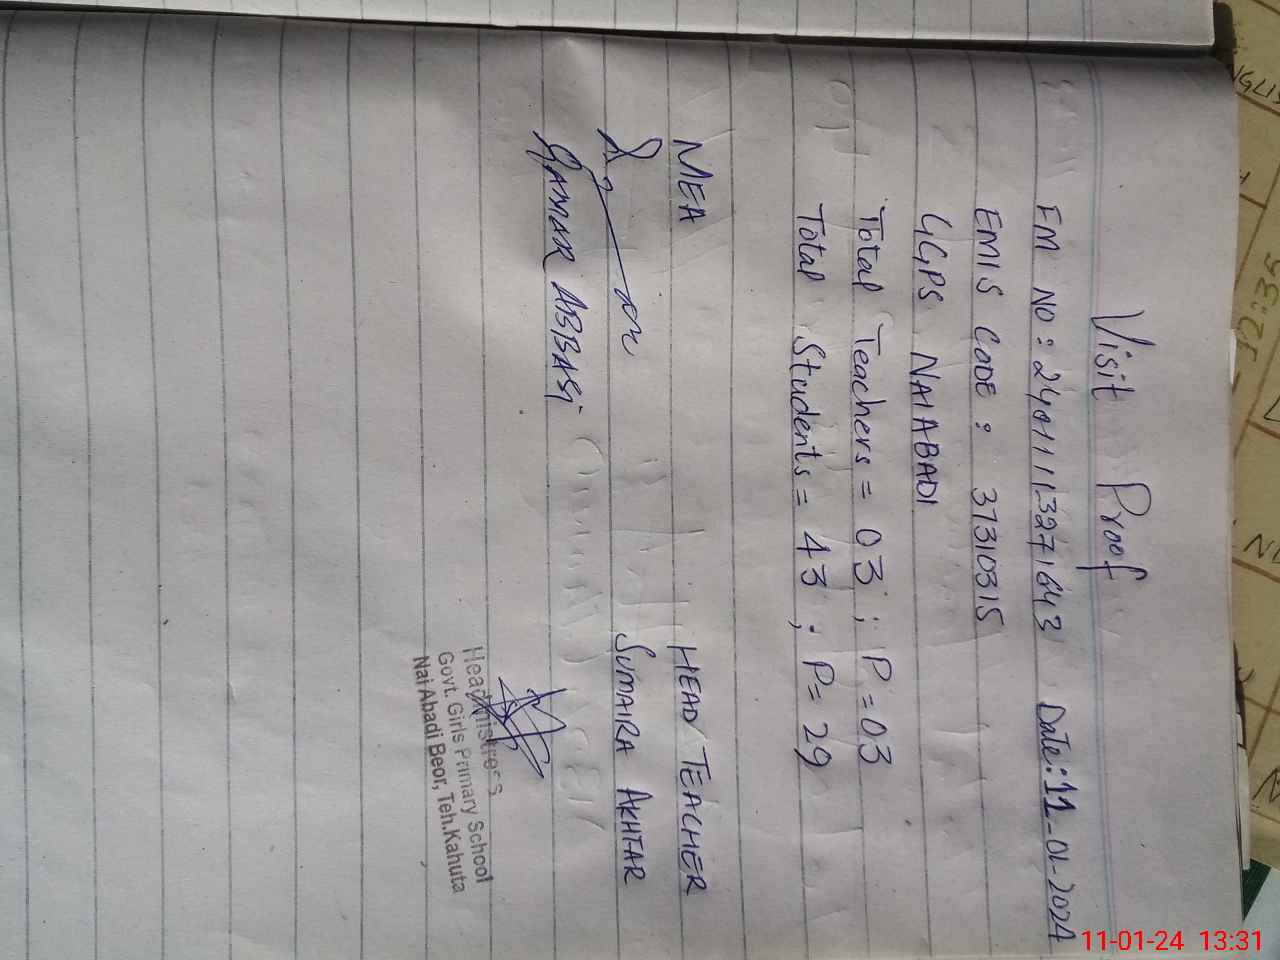 Visit Proof
FM NO: 24011113271643 Date: 11-01-2024
EMIS CODE: 37310315
GGPS NAIABADI
Total Teachers = 03 ; P = 03
Total Students = 43 ; P = 29
MEA HEAD TEACHER
SUMAIRA AKHTAR
QAMAR ABBASi
Headmistress
Govt. Girls Primary School
Nai Abadi Beor, Teh.Kahuta
12:35
11-01-24 13:31